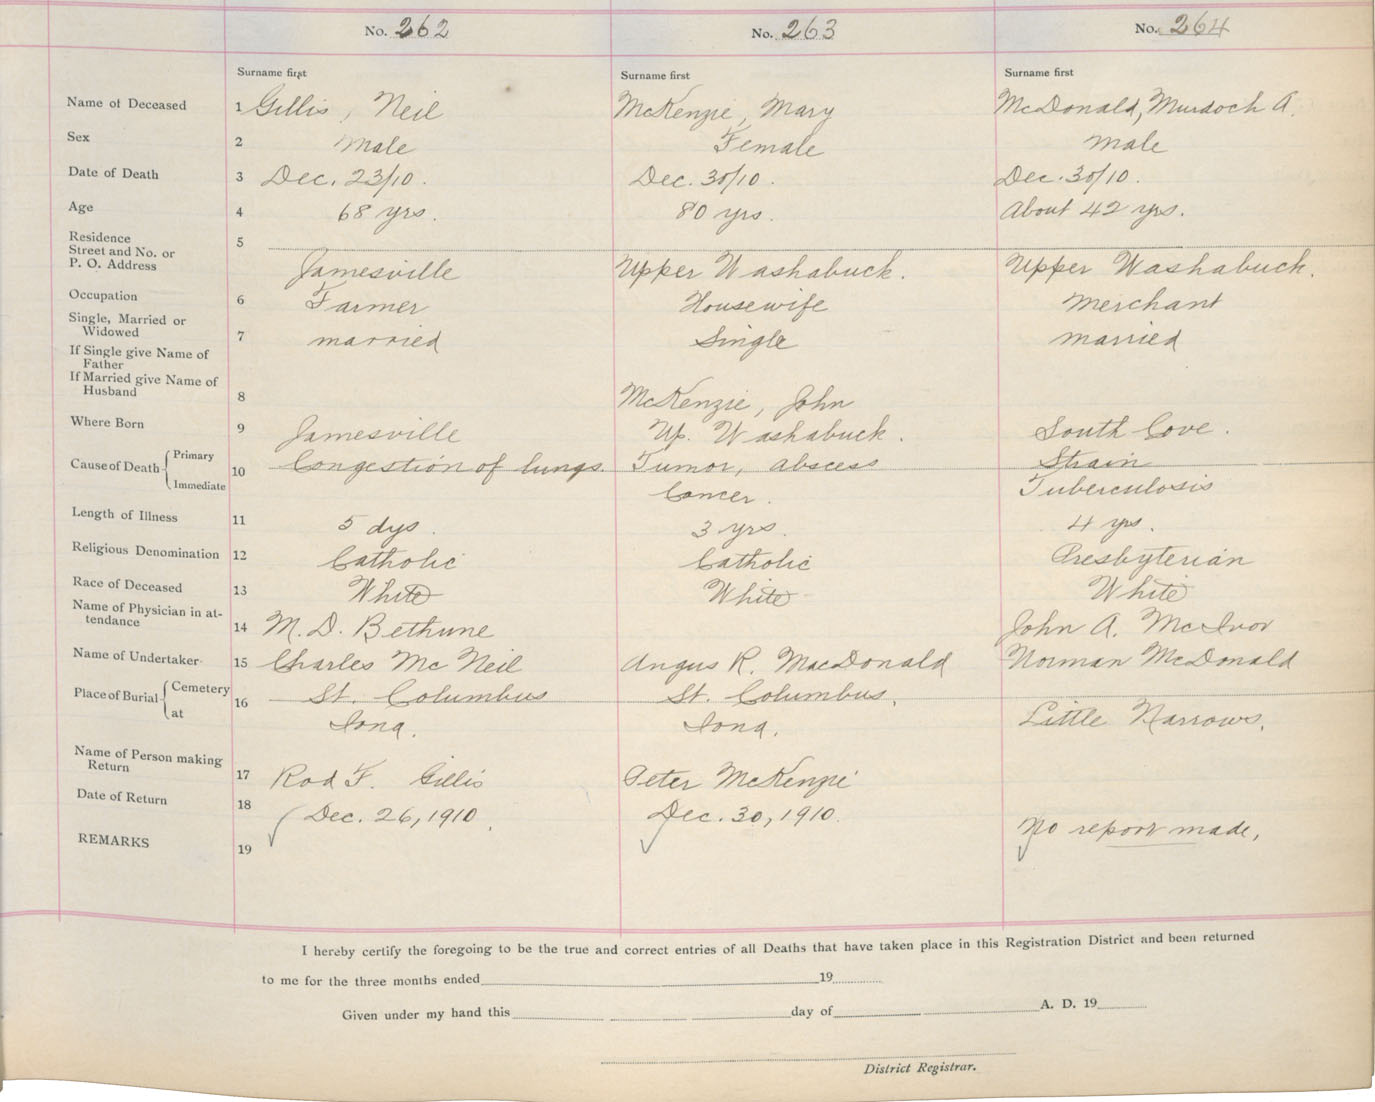 No. 262 No. 263 No. 264
Surname first Surname first Surname first
Name of Deceased 1 Gillis, Neil McKenzie, Mary McDonald, Murdoch A.
Sex 2 Male Female Male
Date of Death 3 Dec. 23/10. Dec. 30/10. Dec. 30/10.
Age 4 68 yrs. 80 yrs. About 42 yrs.
Residence
Street and No. or 5
P. O. Address Jamesville Upper Washabuck. Upper Washabuck.
Occupation 6 Farmer Housewife Merchant
Single, Married or
Widowed 7 married Single married
If Single give Name of
Father
If Married give Name of
Husband 8 McKenzie, John
Where Born 9 Jamesville Up. Washabuck. South Cove.
Cause of Death Primary 10 Congestion of lungs. Tumor, abscess Strain
Immediate Cancer. Tuberculosis
Length of Illness 11 5 dys. 3 yrs. 4 yrs.
Religious Denomination 12 Catholic Catholic Presbyterian
Race of Deceased 13 White White White
Name of Physician in at-
tendance 14 M. D. Bethune John A. McIvor
Name of Undertaker 15 Charles McNeil Angus R. MacDonald Norman McDonald
Place of Burial Cemetery 16 St. Columbus St. Columbus,
at Iona. Iona. Little Narrows.
Name of Person making
Return 17 Rod F. Gillis Peter McKenzie
Date of Return 18 Dec. 26, 1910. Dec. 30, 1910.
REMARKS 19 No report made.
I hereby certify the foregoing to be the true and correct entries of all Deaths that have taken place in this Registration District and been returned
to me for the three months ended 19
Given under my hand this day of A. D. 19
District Registrar.